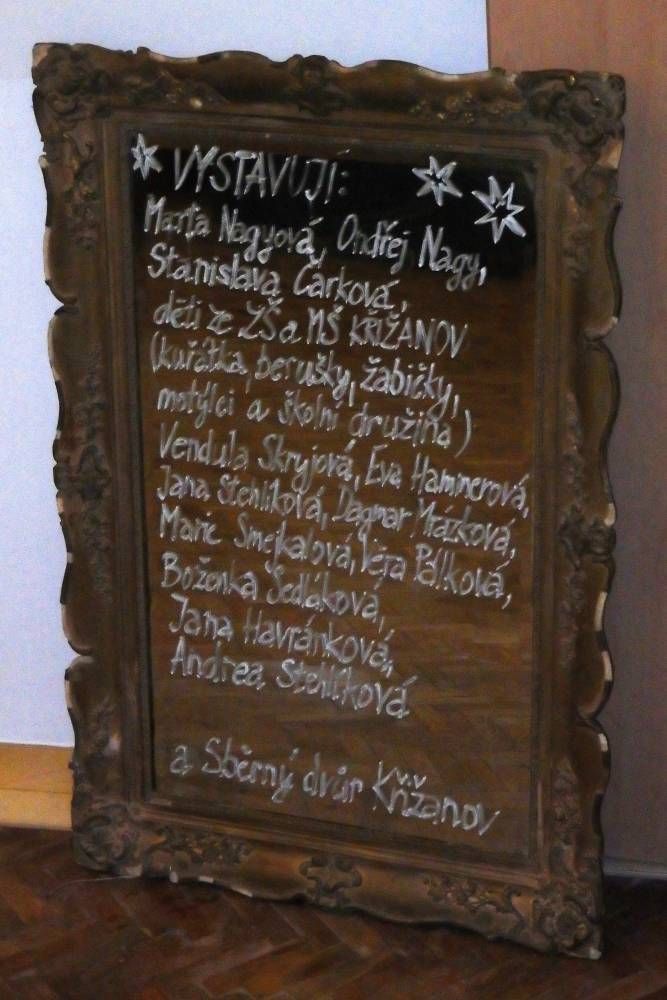 VYSTAVUJÍ:
Marta Nagyová, Ondřej Nagy,
Stanislava Čárková,
děti ze ZŠ a MŠ KŘIŽANOV
(kuřátka, berušky, žabičky,
motýlci a školní družina)
Vendula Skryjová, Eva Hamnerová,
Jana Stehlíková, Dagmar Mrázková,
Marie Smejkalová, Věra Pálková,
Boženka Šedláková,
Jana Havránková,
Andrea Stehlíková
a Sběrný dvůr Křižanov